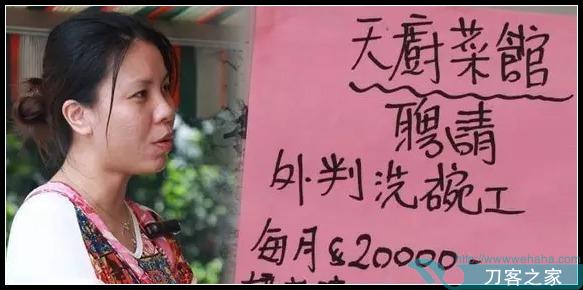 天廚菜館
聘請
外判洗碗工
每月$20000-
http://www.wehaha.com
刀客之家